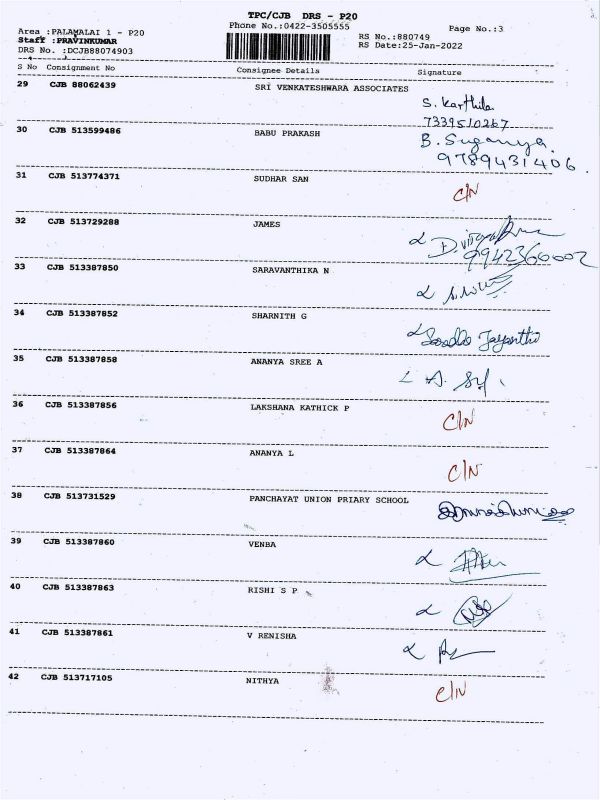 TPC/CJB DRS - P20
Phone No.:0422-3505555
Page No.:3
Area :PALAMALAI 1 - P20
Staff :PRAVINKUMAR
DRS No. :DCJB88074903
RS No.:880749
RS Date:25-Jan-2022
S No Consignment No Consignee Details Signature
29 CJB 88062439 SRI VENKATESHWARA ASSOCIATES
S. Karthika
7339510267
30 CJB 513599486 BABU PRAKASH
B. Suganya
9789431406
31 CJB 513774371 SUDHAR SAN C/N
32 CJB 513729288 JAMES
9942360002
33 CJB 513387850 SARAVANTHIKA N
34 CJB 513387852 SHARNITH G
Jayanthi
35 CJB 513387858 ANANYA SREE A
36 CJB 513387856 LAKSHANA KATHICK P C/N
37 CJB 513387864 ANANYA L C/N
38 CJB 513731529 PANCHAYAT UNION PRIARY SCHOOL
39 CJB 513387860 VENBA
40 CJB 513387863 RISHI S P
41 CJB 513387861 V RENISHA
42 CJB 513717105 NITHYA C/N